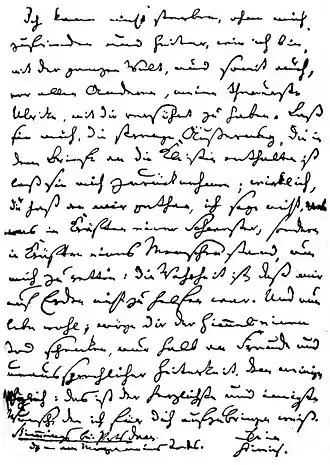 Ich kann nicht sterben, ohne mich,
zufrieden und heiter, wie ich bin,
mit der ganzen Welt, und somit auch,
vor allen Anderen, meine theuerste
Ulrike, mit dir versöhnt zu haben. Laß
sie mich, die strenge Äußerung, die in
dem Briefe an die Kleisten enthalten ist
laß sie mich zurücknehmen; wirklich,
du hast an mir gethan, ich sage nicht, was
in Kräften einer Schwester, sondern
in Kräften eines Menschen stand, um
mich zu retten: die Wahrheit ist, daß mir
auf Erden nicht zu helfen war. Und nun
lebe wohl; möge dir der Himmel einen
Tod schenken, nur halb an Freude und
unaussprechlicher Heiterkeit, dem meinigen
gleich: das ist der herzlichste und innigste
Wunsch, den ich für dich aufzubringen weiß.
Stimmings bei Potsdam
d. – am Morgen meines Todes.
Dein
Heinrich.